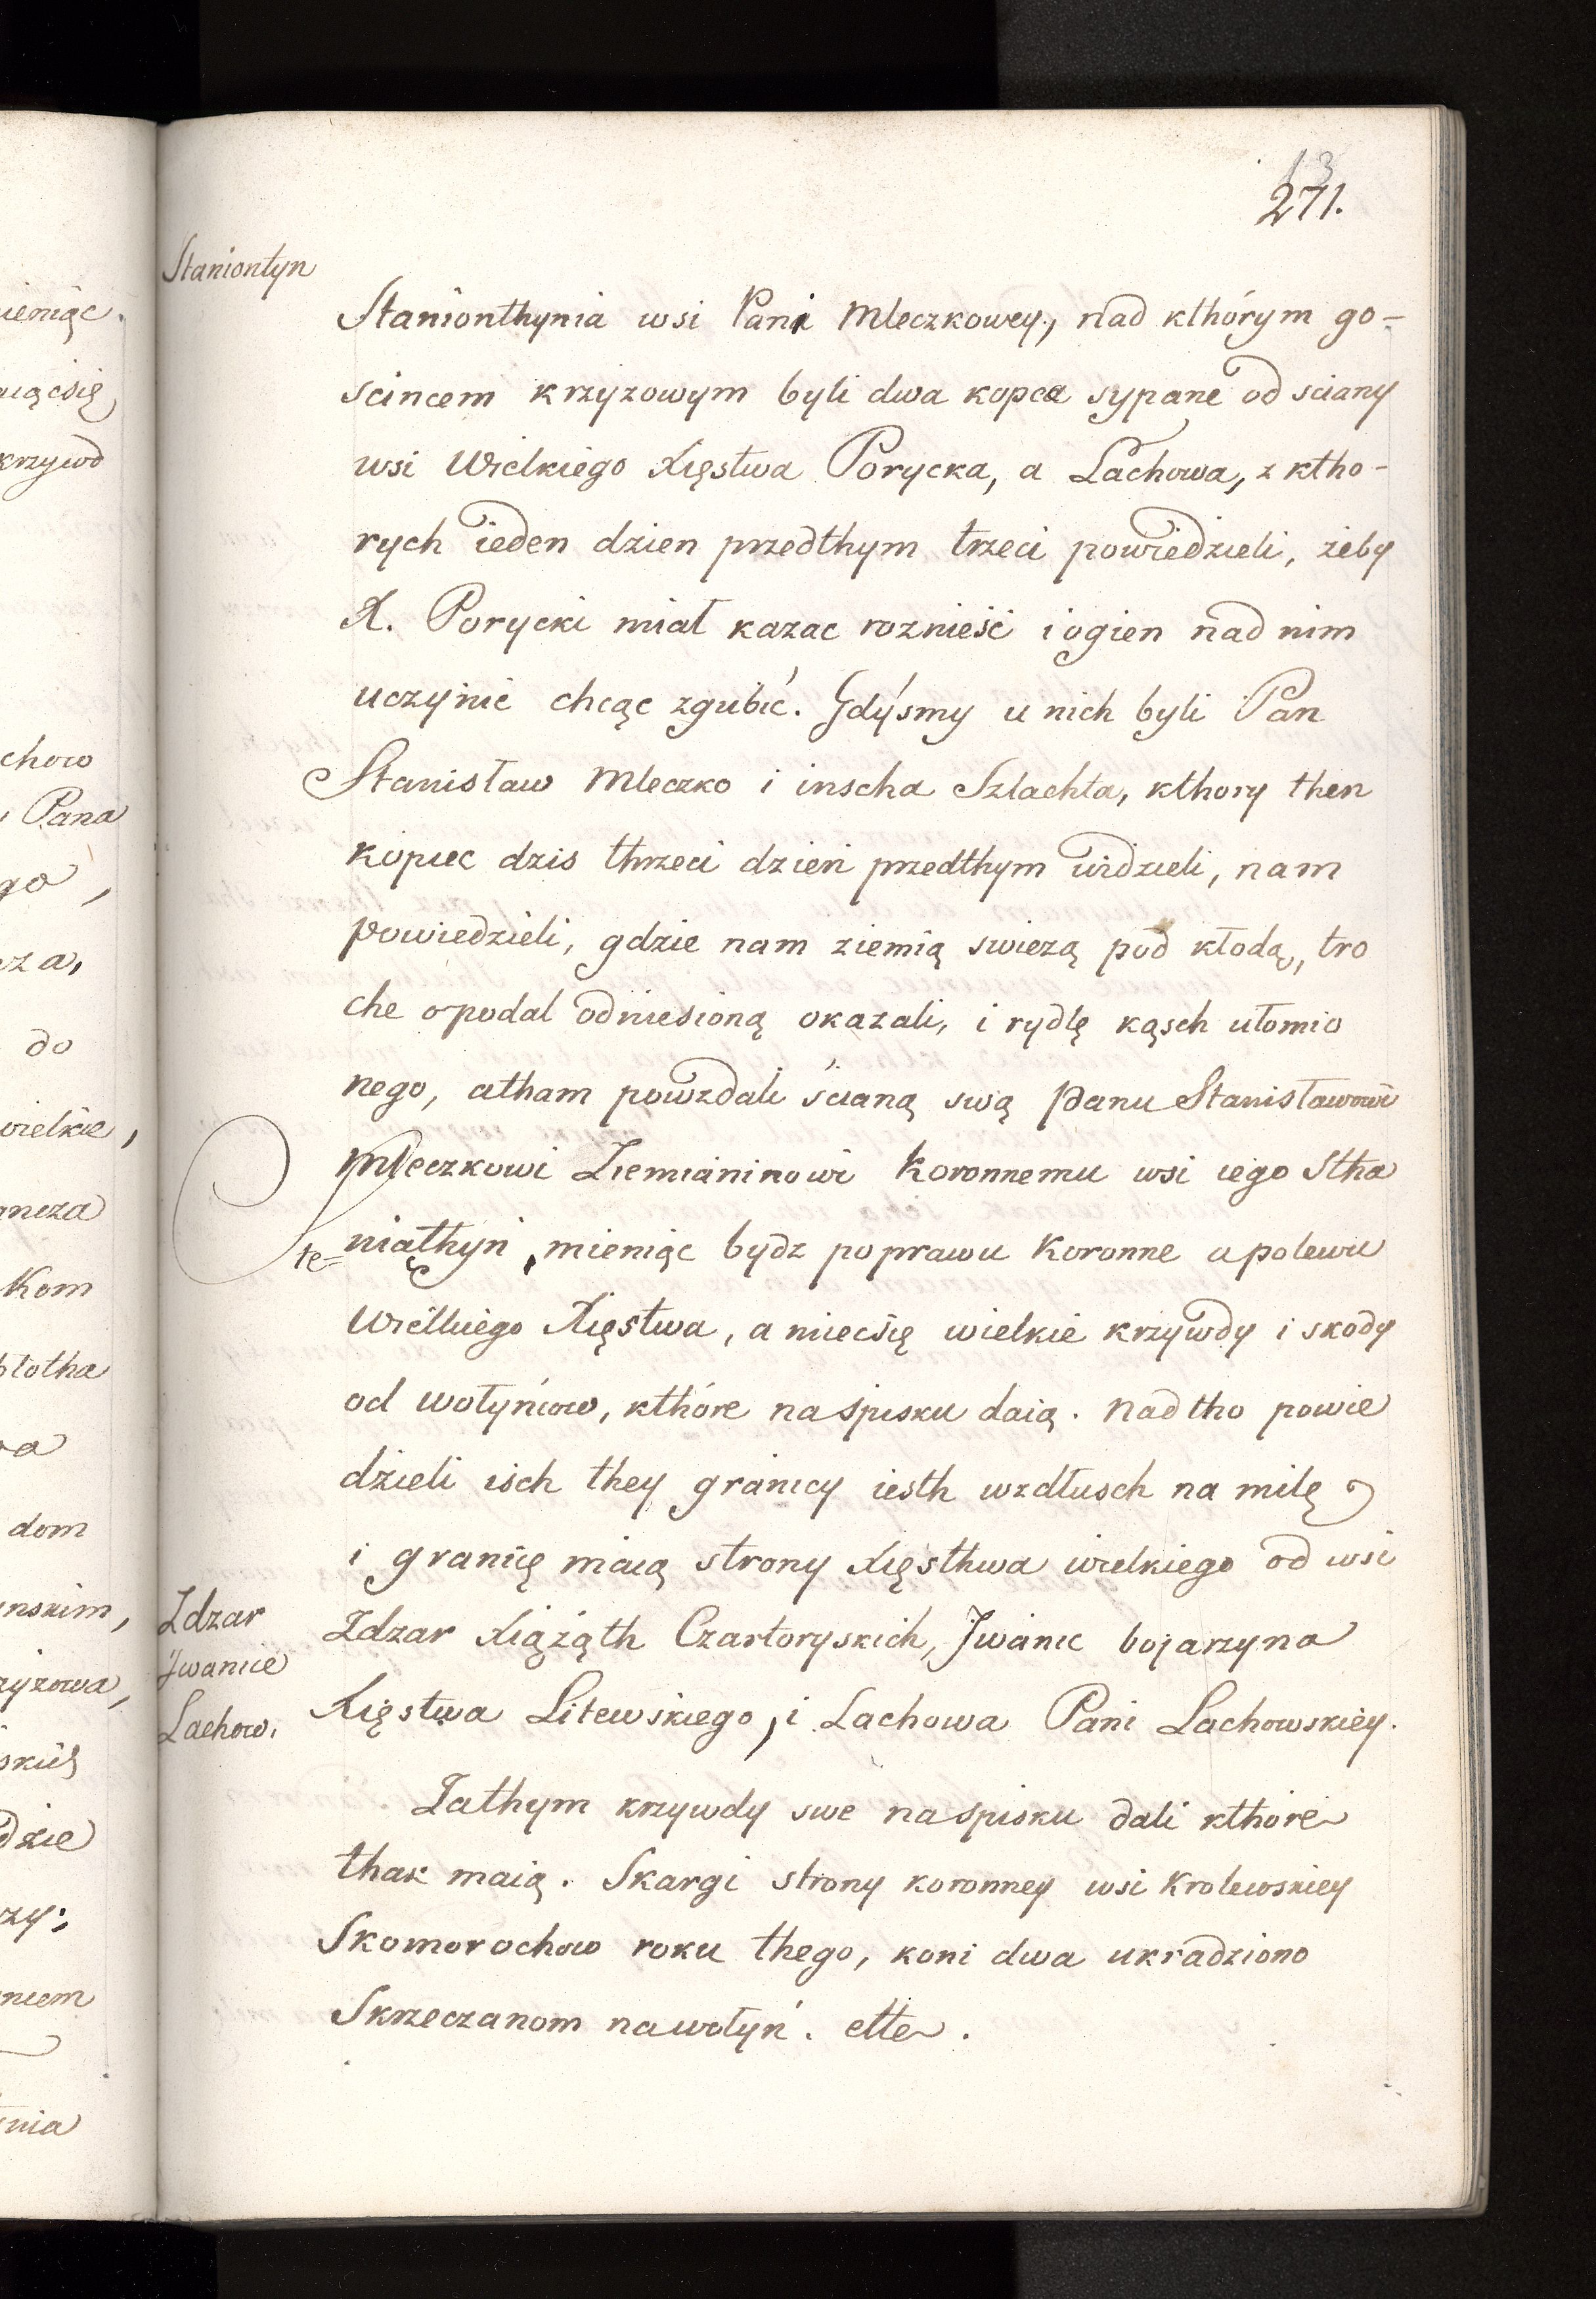 13
271.
Staniontyn
Stanionthynia wsi Pani Mleczkowey, nad kthórym go-
scincem krzyzowym byli dwa kopca sypane od sciany
wsi Wielkiego Xięstwa Porycka, a Lachowa, z ktho-
rych ieden dzien przedthym trzeci powiedzieli, zeby
X. Porycki miał kazac roznieść i ogien nad nim
uczynic chcąc zgubić. Gdyśmy u nich byli Pan
Stanisław Mleczko i inscha Szlachta, kthory then
kopiec dzis thrzeci dzień przedthym widzieli, nam
powiedzieli, gdzie nam ziemią swiezą pod kłodą, tro
che opodal odniesioną okazali, i rydlę kąsch ułomio
nego, a tham powzdali ścianą swą Panu Stanisławowi
Mleczkowi Ziemianinowi Koronnemu wsi iego Stha
te-
niąthyń, mieniąc bydz poprawu Koronne a polewu
Wielkiego Xięstwa, a miecsię wielkie krzywdy i skody
od wołyńcow, kthóre na spisku daią. nadtho powie
dzieli isch they granicy iesth wzdłusch na milę
i granicę maią strony Xięsthwa wielkiego od wsi
Zdzar
Zdzar Xiążąth Czartoryskich, Jwanic bojarzyna
Jwanice
Xięstwa Litewskiego, i Lachowa Pani Lachowskiey.
Lachow.
Zathym krzywdy swe na spisku dali kthore
thak maią. Skargi strony koronney wsi Krolewskiey
Skomorochow roku thego, koni dwa ukradziono
Skrzeczanom na wołyń. ette.